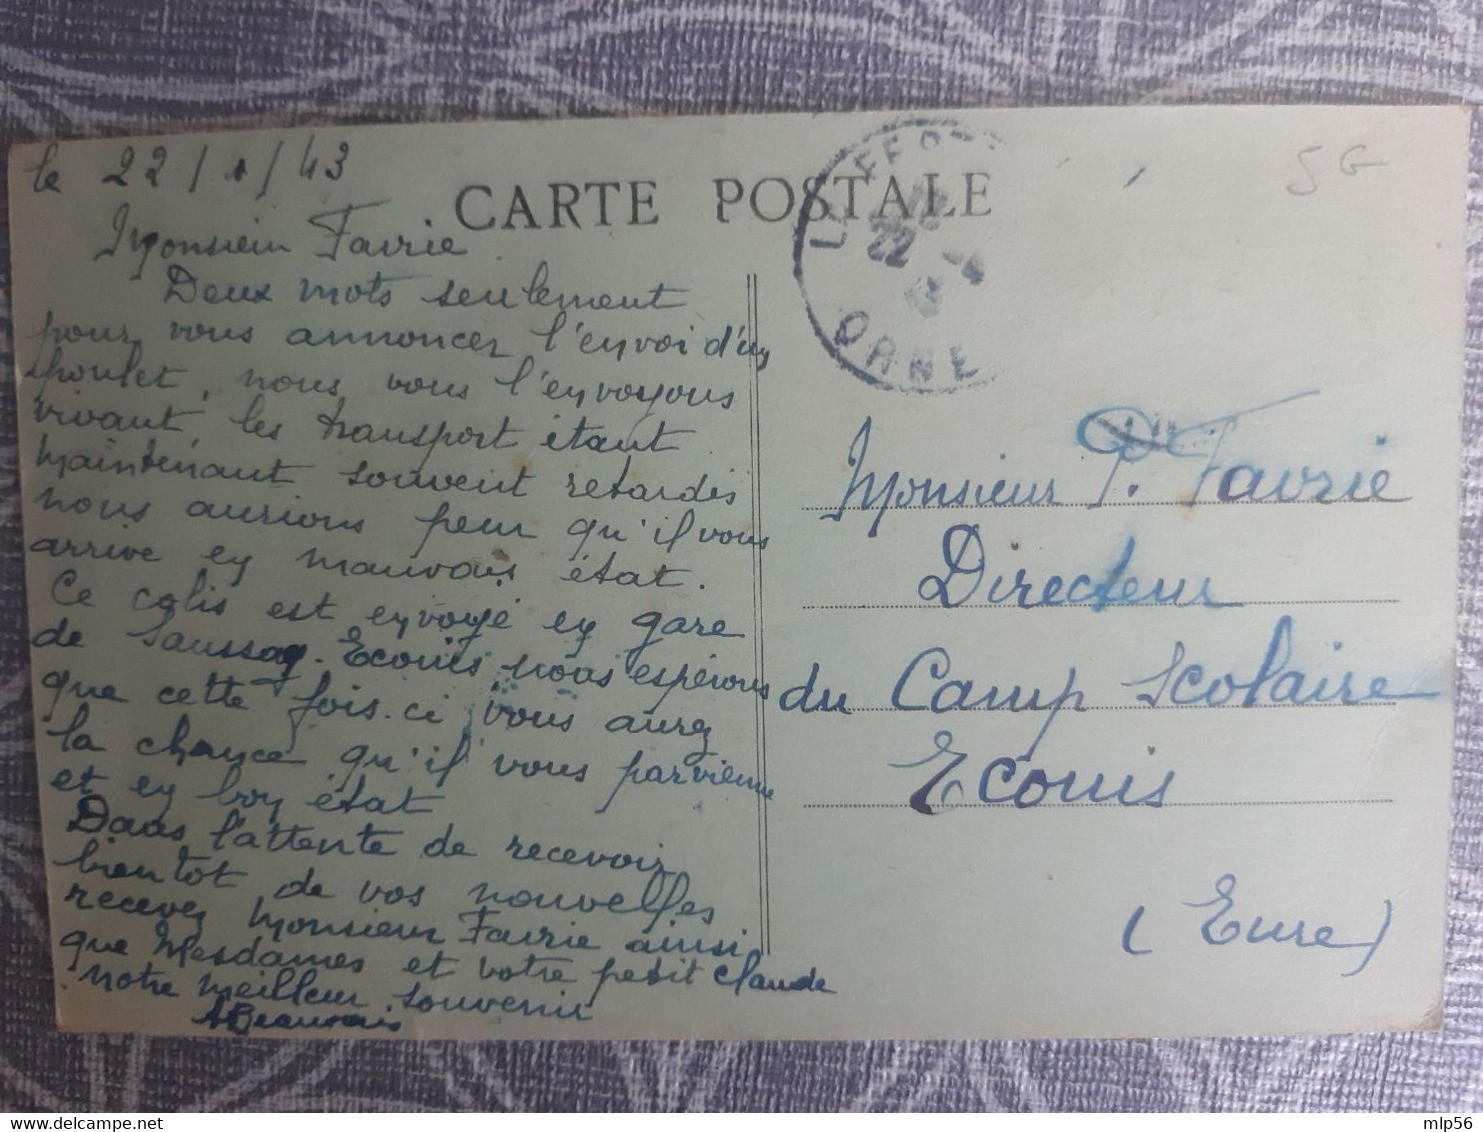 le 22/1/43
CARTE POSTALE
5G
22
ORNE
Monsieur Favrie
Deux mots seulement
pour vous annoncer l'envoi d'un
poulet, nous vous l'envoyons
vivant, les transport étant
maintenant souvent retardés
nous aurions peur qu'il vous
arrive en mauvais état.
Ce colis est envoyé en gare
de Saussay-Ecouis nous espérons
que cette fois-ci vous aurez
la chance qu'il vous parvienne
et en bon état
Dans l'attente de recevoir
bientot de vos nouvelles
recevez Monsieur Favrie ainsi
que Mesdames et votre petit Claude
notre meilleur souvenir
ABeauvais
Monsieur P. Favrie
Directeur
du Camp Scolaire
Ecouis
(Eure)
www.delcampe.net
mlp56